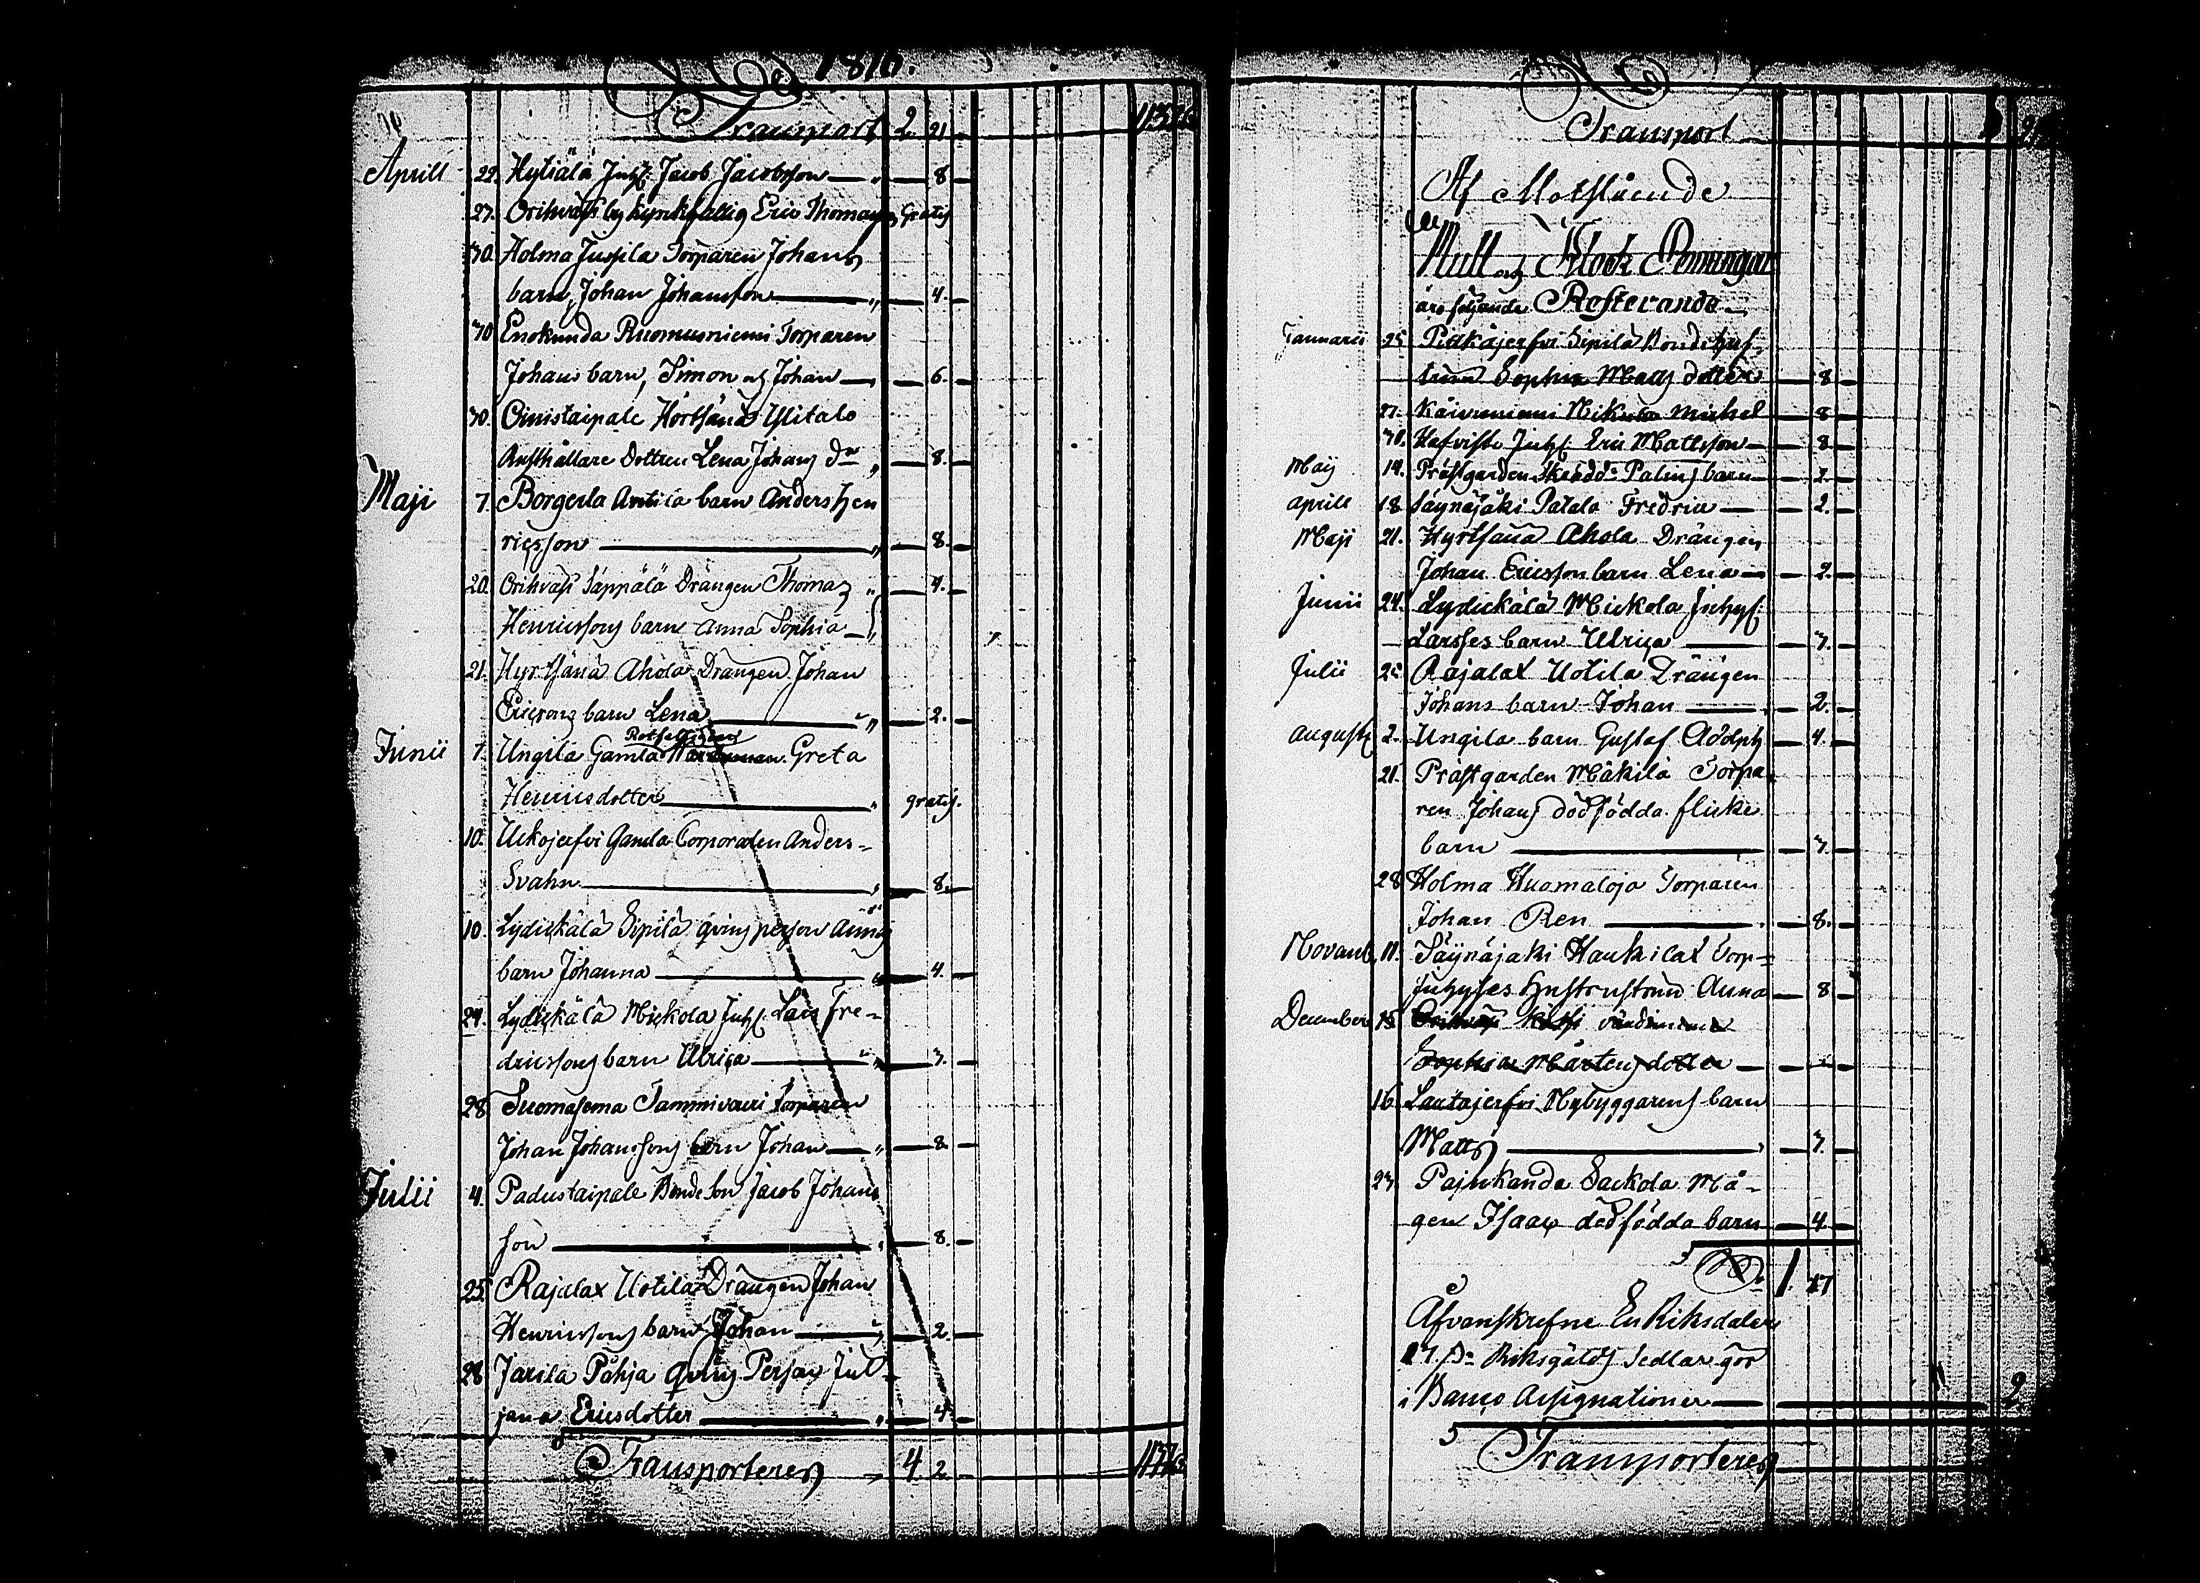 1816.
Transport 2. 21. 113
Aprill 22. Hytiälä Inhs. Jacob Jacobsson — 8 —
27. Orihvesi by kyrkfattig Eric Thomass. Gratis
30. Holma Jussila Torparen Johans
barn, Johan Johansson — 4. —
30 Enokunda Ruomusniemi Torparen
Johans barn, Simon och Johan — 6. —
30. Onnistaipale Hörtsänä Ylitalo
Lena Johans dr — 8. —
Maji 7. Borgerla Antila barn Anders Hen
ricsson — 8. —
20. Orihvesi Säppälä Drängen Thomas — 4. —
Henricssons barn Anna Sophia —
21. Hyrtsänä Ahola Drängen Johan
Ericsons barn Lena — 2. —
Junii 7. Ungila Gamla Rotfattighion Greta
Henricsdotter — gratis.
10. Uckojerfvi Gamla Corporalen Anders
Svahn — 8. —
10. Lydickälä Sipilä qvins person Annas
barn Johanna — 4. —
24. Lydickälä Mickola Inhs. Lars Fre-
dricssons barn Ulrica — 3. —
28 Suomasema Tammivouri Torparen
Johan Johanssons barn Johan — 8. —
Julii 4. Padustaipale Bonde Son Jacob Johans
son — 8. —
25. Rajalax Uotila Drängen Johan
Henricssons barn Johan — 2. —
28 Jarila Pohja Qvins Person Jul
jana Ericsdotter — 4. —
Transporteres 4. 2
Transport
Af Motstående
Mull och Klock Penningar
äro följande Resterande
Januarii 25 Pitkäjerfvi Sipilä Bonde hus-
trun Sophia Matts dotter — 8 —
27. Käivuniemi Michel — 8 —
30. Hafvisto Inhs. Eric Mattsson — 8 —
Maij 14. Prästgården Skrädd. Palins barn — 2. —
Aprill 18 Säynäjäki Fredric — 2. —
Maji 21. Hyrtsänä Ahola Drängen
Johan Ericsson barn Lena — 2. —
Junii 24. Lydickälä Mickola Inhys.
Larsses barn Ulrica — 3. —
Julii 25 Rajalax Uotila Drängen
Johans barn Johan — 2. —
Augusti 2. Ungila barn Gustaf Adolph — 4. —
21. Prästgården Mäkilä Torpa-
ren Johans dödfödda flicke
barn — 3. —
28 Holma Huomaloja Torparen
Johan Ren — 8. —
Novemb. 11. Säynäjaki Haukilax Torp-
Inhyses Hustrun Anna — 8 —
December 15 Orihvesi värdinna
Sophia Mårtens dotter —
16. Lautajerfvi Nybyggarens barn
Matts — 3. —
23 Pajukanda Sackola Må-
gen Isaacs dödfödda barn — 4 —
1. 27
Åfvanskrefne En Riksdaler
27. sk. Riksgälds Sedlar gör
i Banco Assignationer — 9
Transporteres